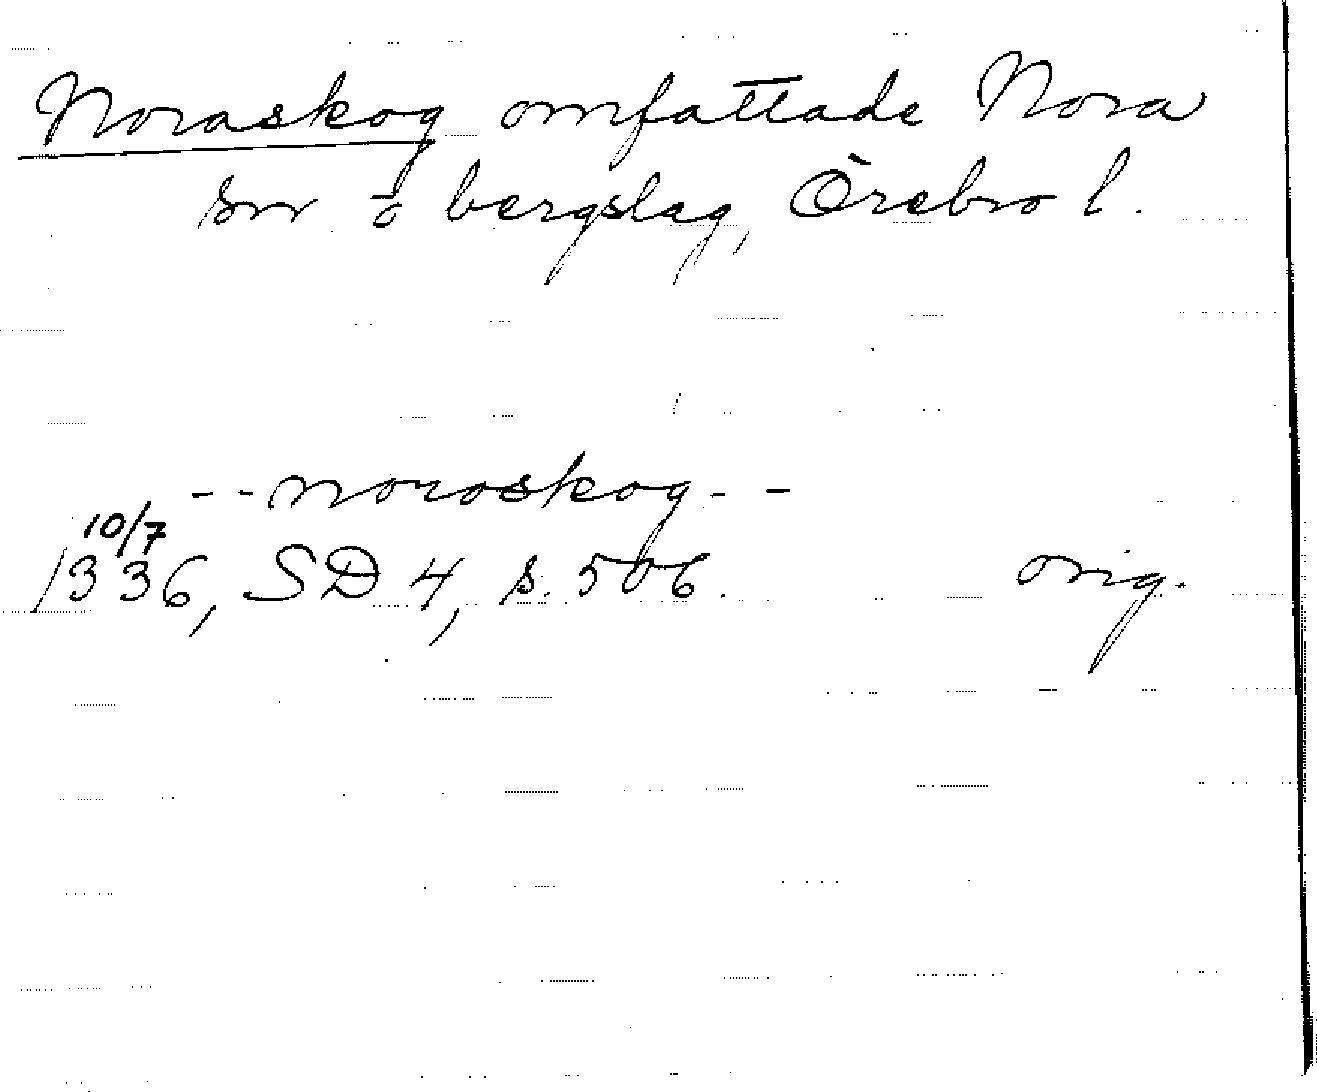 Noraskog omfattade Nora
sn o bergslag, Örebro l.
- - noroskog - -
10/7
1336, SD 4, s. 506. orig.